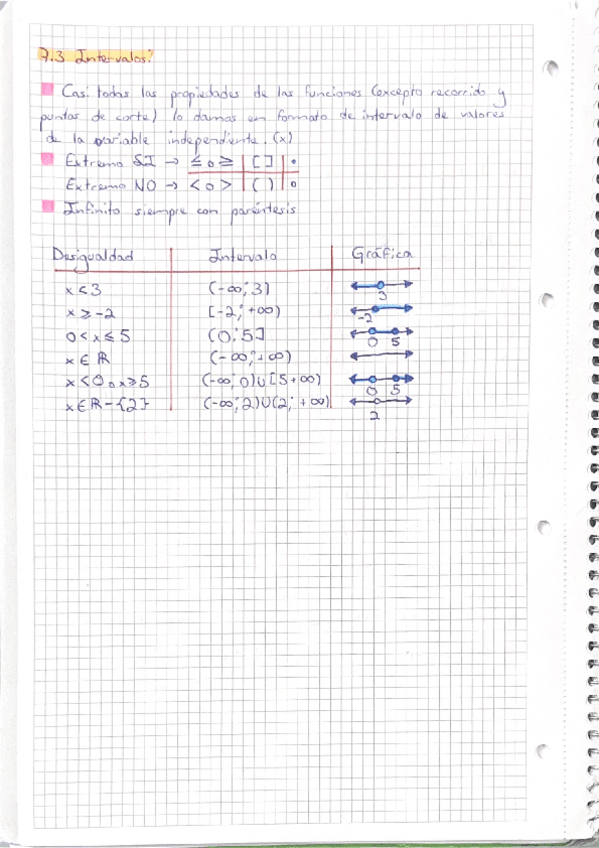 7.3 Intervalos:
Casi todas las propiedades de las funciones (excepto recorrido y
puntos de corte) lo damos en formato de intervalo de valores
de la variable independiente. (x)
Extremo SI → ≤ o ≥ | [ ] | •
Extremo NO → < o > | ( ) | o
Infinito siempre con paréntesis
Desigualdad Intervalo Gráfica
x < 3 (-∞; 3) 3
x ≥ -2 [-2; +∞) -2
0 < x ≤ 5 (0; 5] 0 5
x ∈ ℝ (-∞; +∞)
x < 0 o x ≥ 5 (-∞; 0) ∪ [5 +∞) 0 5
x ∈ ℝ - {2} (-∞; 2) ∪ (2; +∞) 2